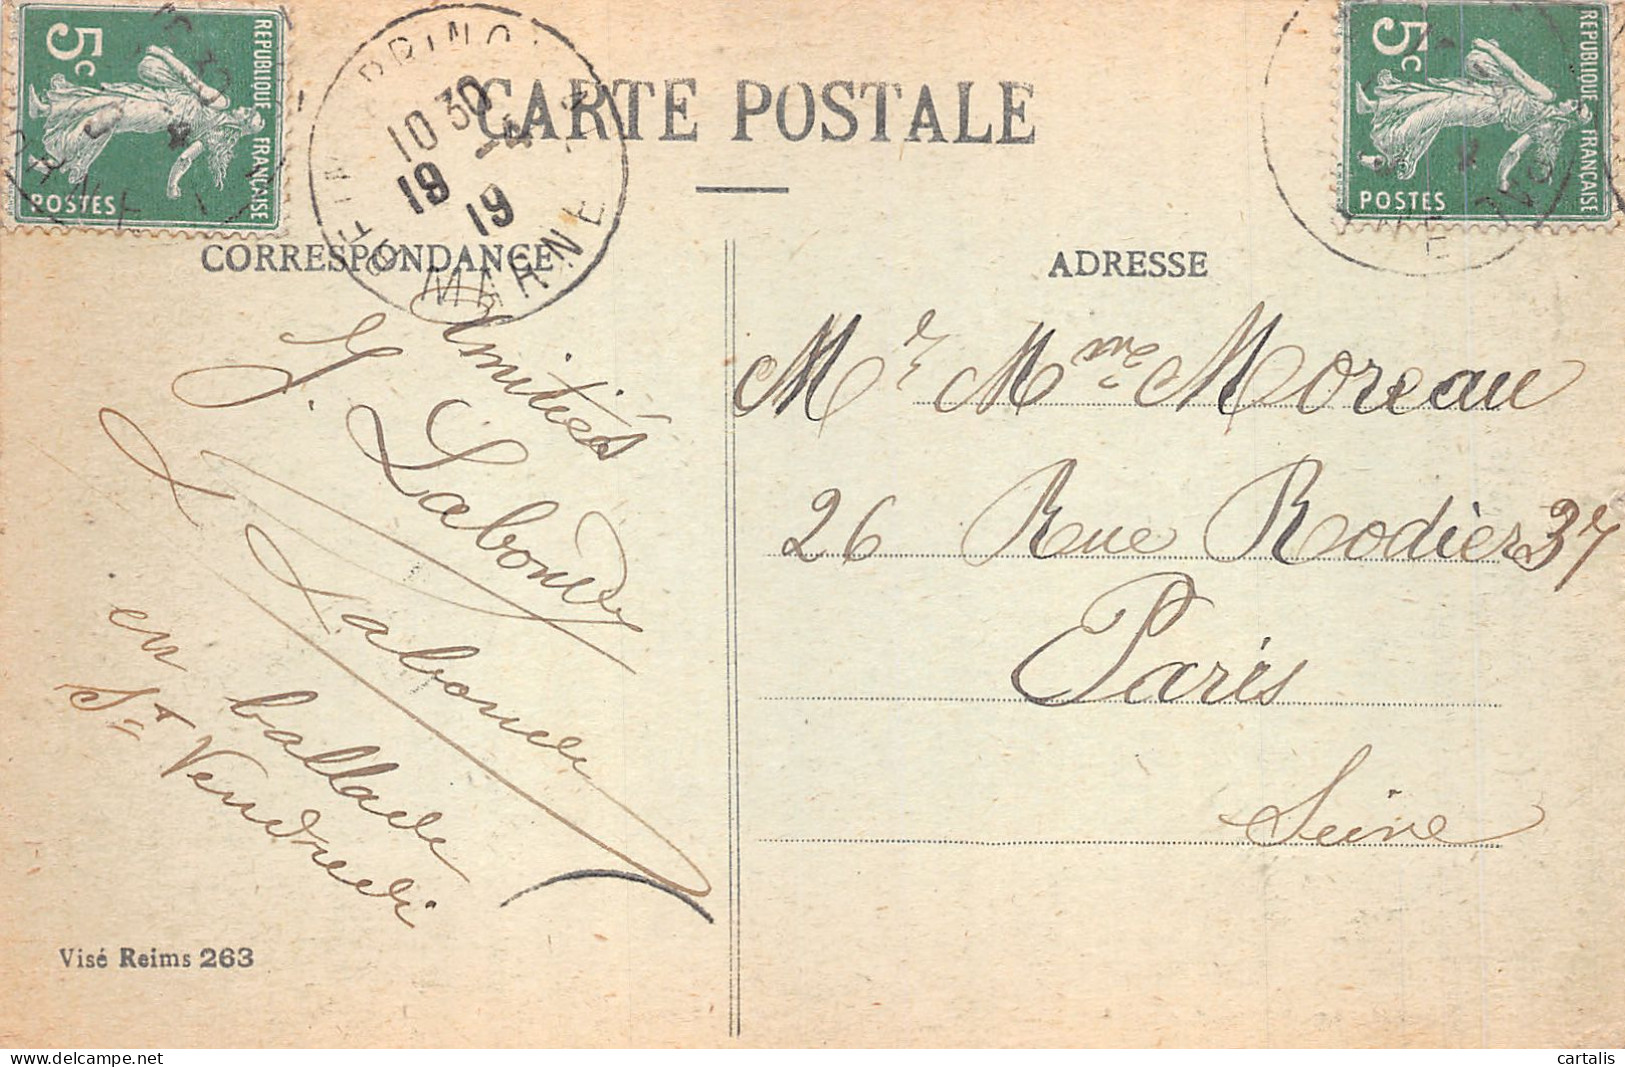 5c
REPUBLIQUE FRANÇAISE
POSTES
10 30
19 -4
19
MARNE
CARTE POSTALE
5c
REPUBLIQUE FRANÇAISE
POSTES
CORRESPONDANCE
Amitiés
J. Labourde
Labourde
en ballade
St Vendredi
Visé Reims 263
ADRESSE
Mr Mme Moreau
26 Rue Rodier 37
Paris
Seine
cartalis